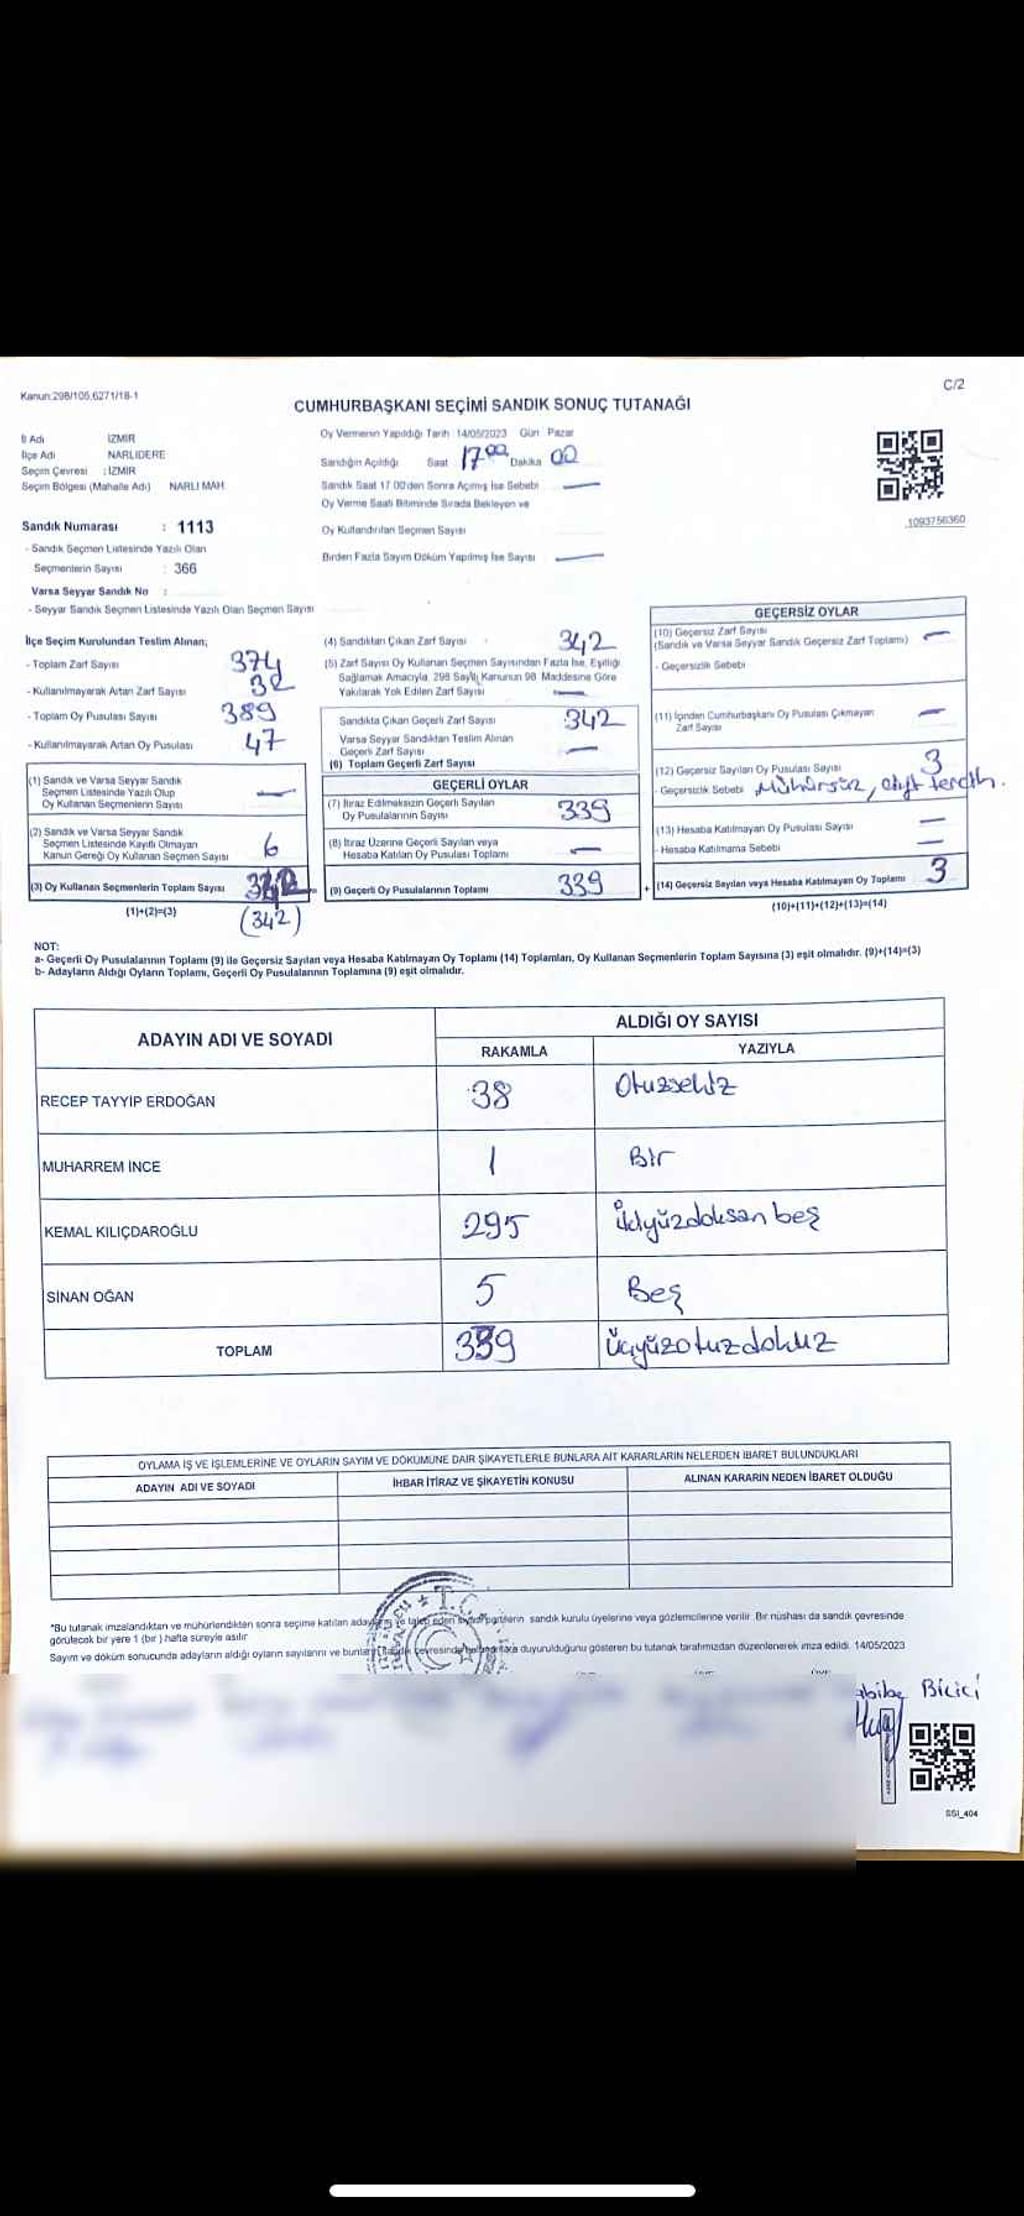 Kanun:298/105,6271/18-1
C/2
CUMHURBAŞKANI SEÇİMİ SANDIK SONUÇ TUTANAĞI
İl Adı İZMİR
İlçe Adı NARLIDERE
Seçim Çevresi : İZMİR
Seçim Bölgesi (Mahalle Adı) NARLI MAH.
Sandık Numarası : 1113
- Sandık Seçmen Listesinde Yazılı Olan
Seçmenlerin Sayısı : 366
Varsa Seyyar Sandık No :
- Seyyar Sandık Seçmen Listesinde Yazılı Olan Seçmen Sayısı
Oy Vermenin Yapıldığı Tarih 14/05/2023 Gün Pazar
Sandığın Açıldığı Saat 17 00 Dakika 00
Sandık Saat 17.00'den Sonra Açımış İse Sebebi —
Oy Verme Saati Bitiminde Sırada Bekleyen ve
Oy Kullandırılan Seçmen Sayısı
Birden Fazla Sayım Döküm Yapılmış İse Sayısı —
1093756360
İlçe Seçim Kurulundan Teslim Alınan;
- Toplam Zarf Sayısı 374
- Kullanılmayarak Artan Zarf Sayısı 32
- Toplam Oy Pusulası Sayısı 389
- Kullanılmayarak Artan Oy Pusulası 47
(1) Sandık ve Varsa Seyyar Sandık
Seçmen Listesinde Yazılı Olup
Oy Kullanan Seçmenlerin Sayısı —
(2) Sandık ve Varsa Seyyar Sandık
Seçmen Listesinde Kayıtlı Olmayan
Kanun Gereği Oy Kullanan Seçmen Sayısı 6
(3) Oy Kullanan Seçmenlerin Toplam Sayısı
(1)+(2)=(3) (342)
(4) Sandıktan Çıkan Zarf Sayısı 342
(5) Zarf Sayısı Oy Kullanan Seçmen Sayısından Fazla İse, Eşitliği
Sağlamak Amacıyla, 298 Sayılı Kanunun 98. Maddesine Göre
Yakılarak Yok Edilen Zarf Sayısı —
Sandıkta Çıkan Geçerli Zarf Sayısı 342
Varsa Seyyar Sandıktan Teslim Alınan
Geçerli Zarf Sayısı —
(6) Toplam Geçerli Zarf Sayısı
GEÇERLİ OYLAR
(7) İtiraz Edilmeksizin Geçerli Sayılan
Oy Pusulalarının Sayısı 339
(8) İtiraz Üzerine Geçerli Sayılan veya
Hesaba Katılan Oy Pusulası Toplamı —
(9) Geçerli Oy Pusulalarının Toplamı 339
+
GEÇERSİZ OYLAR
(10) Geçersiz Zarf Sayısı
(Sandık ve Varsa Seyyar Sandık Geçersiz Zarf Toplamı) —
- Geçersizlik Sebebi
(11) İçinden Cumhurbaşkanı Oy Pusulası Çıkmayan
Zarf Sayısı —
(12) Geçersiz Sayılan Oy Pusulası Sayısı 3
- Geçersizlik Sebebi Mühürsüz, çift tercih.
(13) Hesaba Katılmayan Oy Pusulası Sayısı —
- Hesaba Katılmama Sebebi —
(14) Geçersiz Sayılan veya Hesaba Katılmayan Oy Toplamı 3
(10)+(11)+(12)+(13)=(14)
NOT:
a- Geçerli Oy Pusulalarının Toplamı (9) ile Geçersiz Sayılan veya Hesaba Katılmayan Oy Toplamı (14) Toplamları, Oy Kullanan Seçmenlerin Toplam Sayısına (3) eşit olmalıdır. (9)+(14)=(3)
b- Adayların Aldığı Oyların Toplamı, Geçerli Oy Pusulalarının Toplamına (9) eşit olmalıdır.
ADAYIN ADI VE SOYADI
ALDIĞI OY SAYISI
RAKAMLA YAZIYLA
RECEP TAYYİP ERDOĞAN 38 Otuzsekiz
MUHARREM İNCE 1 Bir
KEMAL KILIÇDAROĞLU 295 ikiyüzdoksan beş
SİNAN OĞAN 5 Beş
TOPLAM 339 Üçyüzotuzdokuz
OYLAMA İŞ VE İŞLEMLERİNE VE OYLARIN SAYIM VE DÖKÜMÜNE DAİR ŞİKAYETLERLE BUNLARA AİT KARARLARIN NELERDEN İBARET BULUNDUKLARI
ADAYIN ADI VE SOYADI İHBAR İTİRAZ VE ŞİKAYETİN KONUSU ALINAN KARARIN NEDEN İBARET OLDUĞU
T.C.
*Bu tutanak imzalandıktan ve mühürlendikten sonra seçime katılan aday ve talep eden siyasi partilerin sandık kurulu üyelerine veya gözlemcilerine verilir. Bir nüshası da sandık çevresinde
görülecek bir yere 1 (bir ) hafta süreyle asılır.
Sayım ve döküm sonucunda adayların aldığı oyların sayılarını ve sandık çevresinde duyurulduğunu gösteren bu tutanak tarafımızdan düzenlenerek imza edildi. 14/05/2023
Bicici
SSI_404